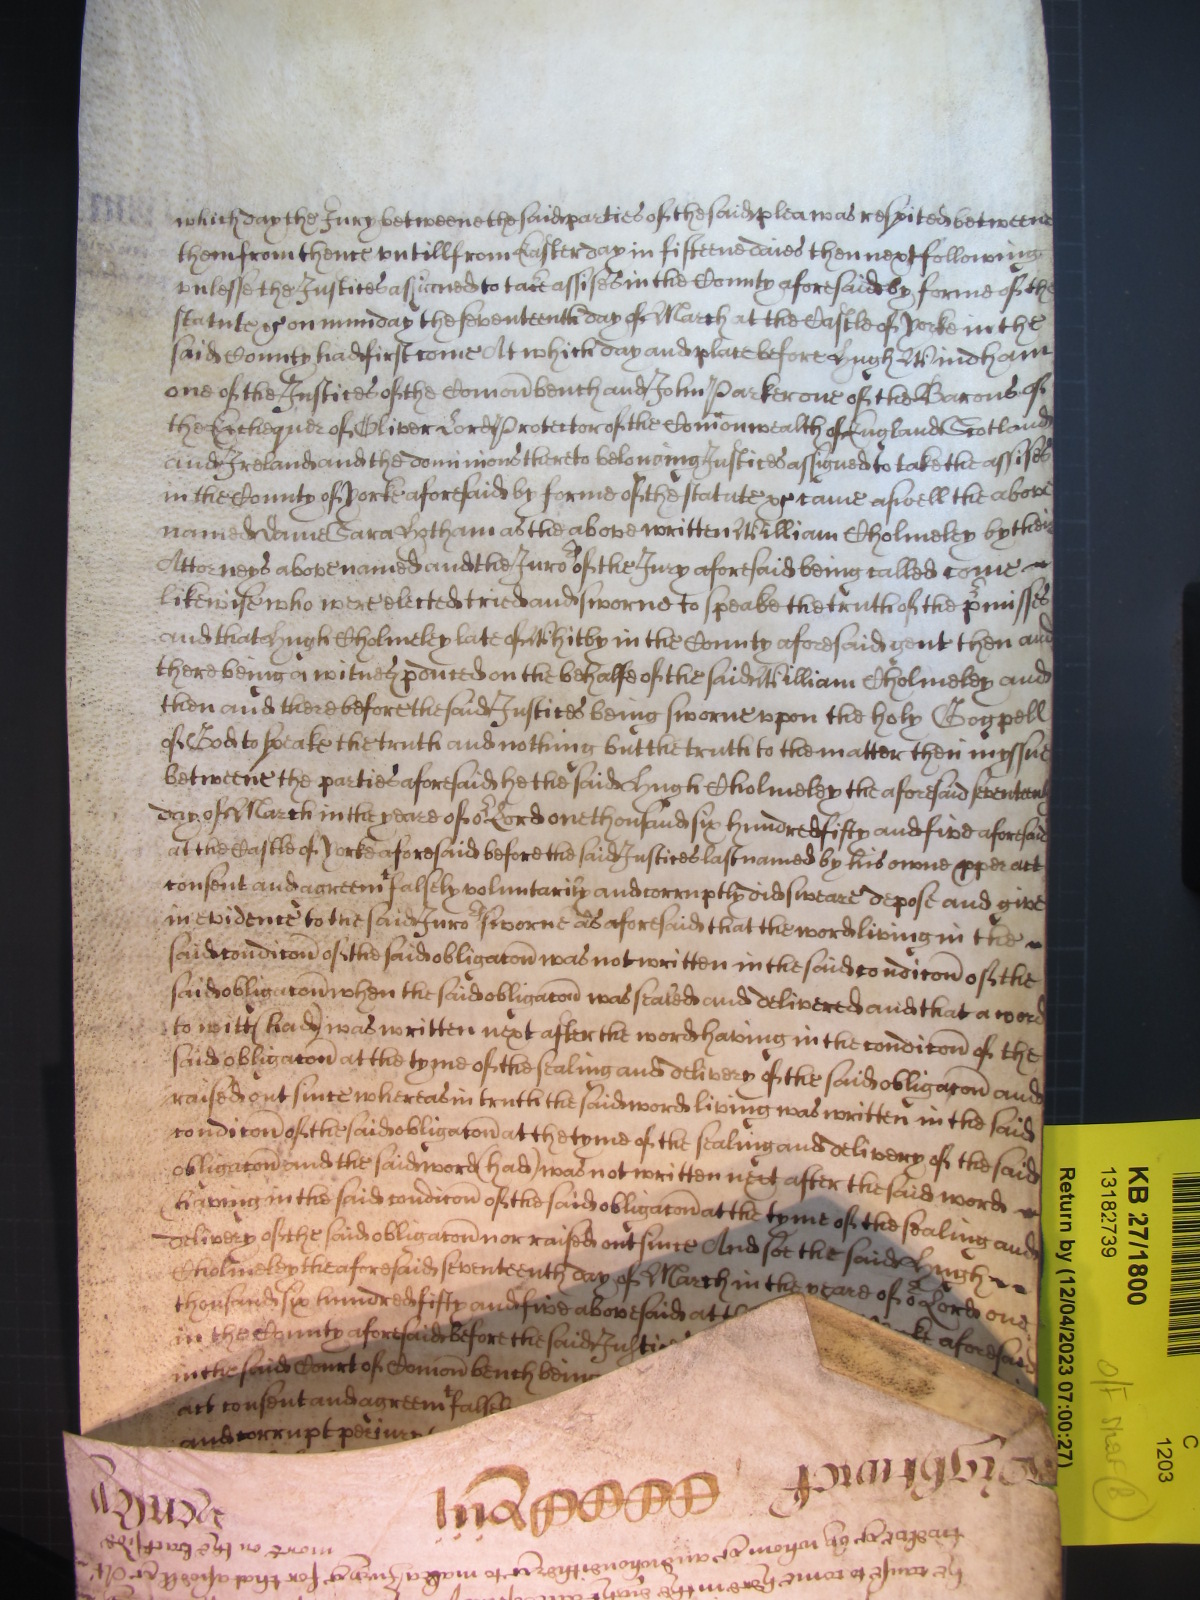 which day the Jury betweene the said parties of the said plea was respited betweene
them from thence untill from Easter day in fifteene daies then next following
unlesse the Justices assigned to take assises in the County aforesaid by forme of the
statute &c on munday the seventeenth day of March at the Castle of Yorke in the
said County had first come At which day and place before Hugh Windham
one of the Justices of the Comon bench and John Parker one of the Barons of
the Exchequer of Oliver Lord Protector of the Comonwealth of England Scotland
and Ireland and the dominions thereto belonging Justices assigned to take the assises
in the County of Yorke aforesaid by forme of the statute &c came aswell the above
named Dame Sara Hotham as the above written William Cholmeley by their
Attorneys above named and the Juro^rs of the Jury aforesaid being called come
likewise who were elected tried and sworne to speake the truth of the p~misses
and that Hugh Cholmeley late of Whitby in the County aforesaid gent then and
there being a witnes p~duced on the behalfe of the said William Cholmeley and
then and there before the said Justices being sworne upon the holy Gospell
of God to speake the truth and nothing but the truth to the matter then in yssue
betweene the parties aforesaid he the said Hugh Cholmeley the aforesaid seventeenth
day of March in the yeare of o^r Lord one thousand six hundred fifty and five aforesaid
at the Castle of Yorke aforesaid before the said Justices last named by his owne pper act
consent and agreem^t falsely voluntarily and corruptly did sweare depose and give
in evidence to the said Juro^rs sworne as aforesaid that the word living in the
said condicon of the said obligacon was not written in the said condicon of the
said obligacon when the said obligacon was sealed and delivered and that a word
to witt (had) was written next after the word having in the condicon of the
said obligacon at the tyme of the sealing and delivery of the said obligacon and
raised out since whereas in truth the said word living was written in the said
condicon of the said obligacon at the tyme of the sealing and delivery of the said
obligacon and the said word (had) was not written next after the said word
having in the said condicon of the said obligacon at the tyme of the sealing and
delivery of the said obligacon nor raised out since And soe the said Hugh
Cholmeley the aforesaid seventeenth day of March in the yeare of o^r Lord one
thousand six hundred fifty and five abovesaid at the Yorke aforesaid
in the County aforesaid before the said Justic
in the said Court of Comon bench being
act consent and agreem^t falsel
and corrupt perjury
KB 27/1800
13182739
Return by (12/04/2023 07:00:27)
C
1203